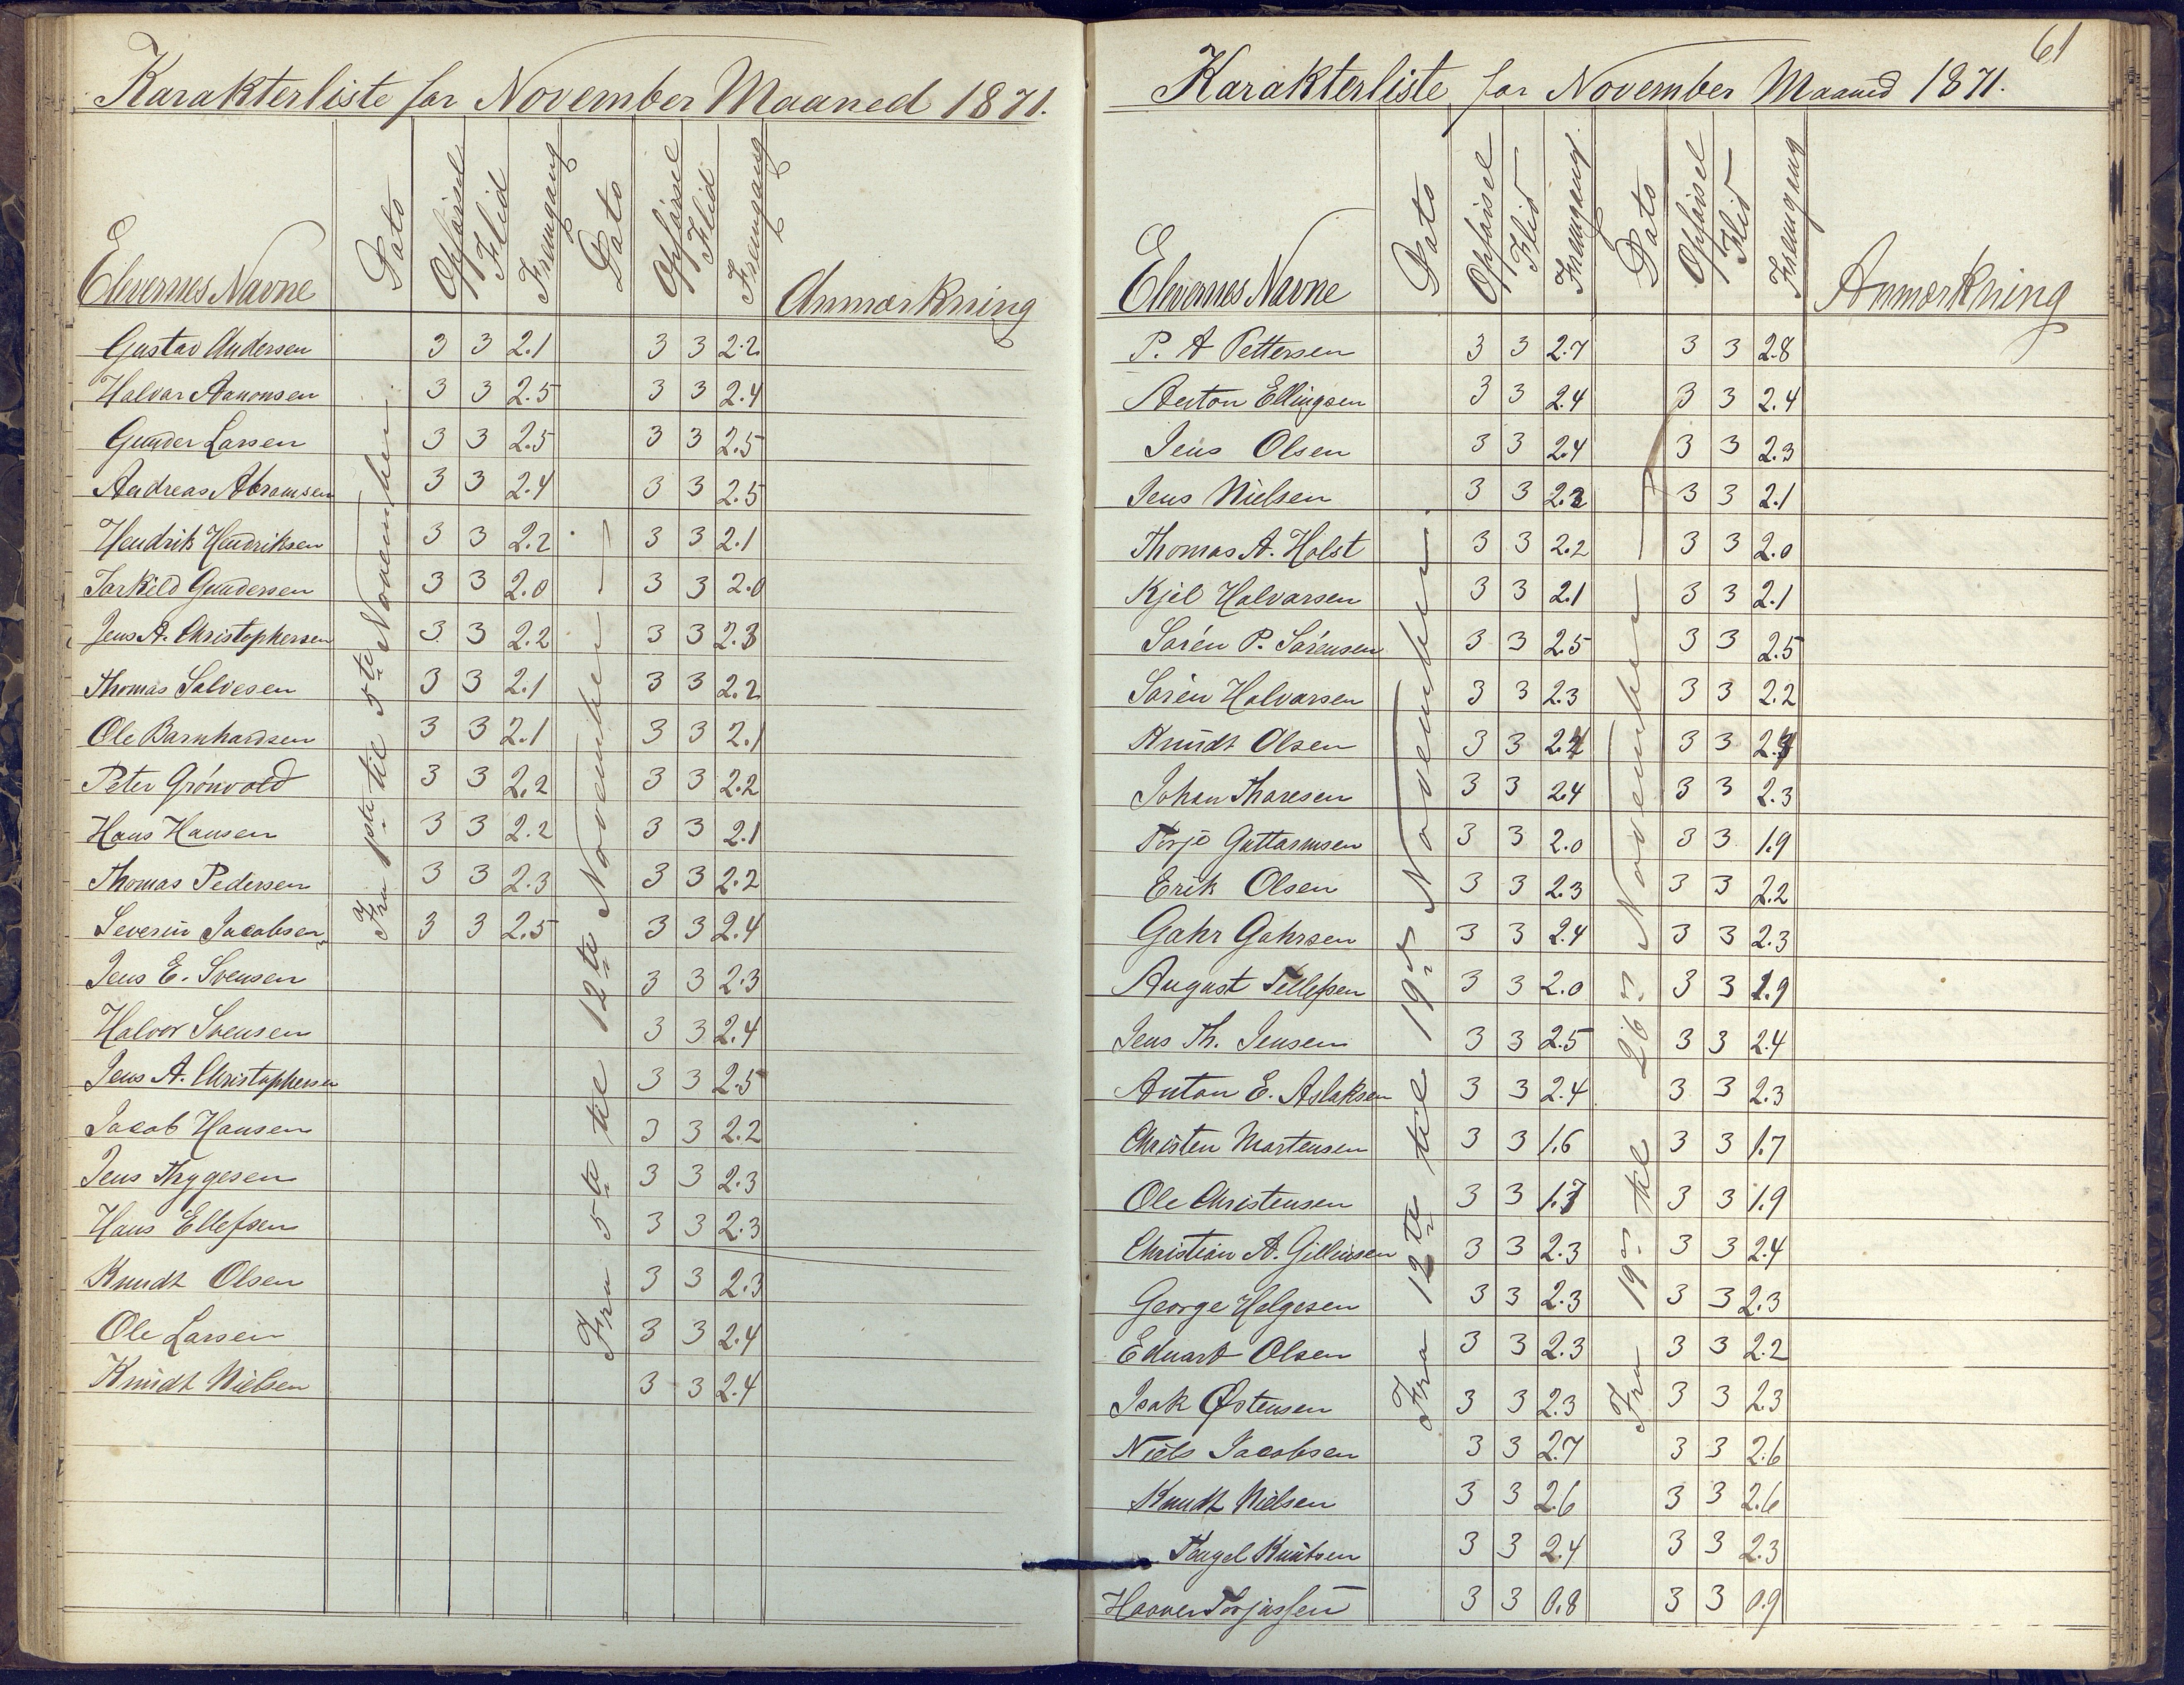 Karakterliste for November Maaned 1871.
Elevernes Navne Dato Opførsel Flid Fremgang Dato Opførsel Flid Fremgang Anmærkning
Fra 1ste til 5te November.
Fra 5te til 12te November
Gustav Andersen 3 3 2.1 3 3 2.2
Halvar Aanonsen 3 3 2.5 3 3 2.4
Gunder Larsen 3 3 2.5 3 3 2.5
Andreas Abramsen 3 3 2.4 3 3 2.5
Hendrik Hendriksen 3 3 2.2 3 3 2.1
Tarkeld Gundersen 3 3 2.0 3 3 2.0
Jens A. Christophersen 3 3 2.2 3 3 2.3
Thomas Salvesen 3 3 2.1 3 3 2.2
Ole Barnhardsen 3 3 2.1 3 3 2.1
Peter Grönvold 3 3 2.2 3 3 2.2
Hans Hansen 3 3 2.2 3 3 2.1
Thomas Pedersen 3 3 2.3 3 3 2.2
Severin Jacobsen 3 3 2.5 3 3 2.4
Jens E. Svensen 3 3 2.3
Halvor Svensen 3 3 2.4
Jens A. Christophersen 3 3 2.5
Jacob Hansen 3 3 2.2
Jens Thygesen 3 3 2.3
Hans Ellefsen 3 3 2.3
Knudt Olsen 3 3 2.3
Ole Larsen 3 3 2.4
Knudt Nielsen 3 3 2.4
61
Karakterliste for November Maaned 1871.
Elevernes Navne Dato Opførsel Flid Fremgang. Dato Opførsel Flid Fremgang Anmærkning
Fra 12te til 19de November.
Fra 19de til 26de November
P. A Pettersen 3 3 2.7 3 3 2.8
Anton Ellingsen 3 3 2.4 3 3 2.4
Jens Olsen 3 3 2.4 3 3 2.3
Jens Nielsen 3 3 2.2 3 3 2.1
Thomas A. Holst 3 3 2.2 3 3 2.0
Kjel Halvarsen 3 3 2.1 3 3 2.1
Sarén P. Sarensen 3 3 2.5 3 3 2.5
Sarén Halvarsen 3 3 2.3 3 3 2.2
Knudt Olsen 3 3 2.4 3 3
Johan Tharesen 3 3 2.4 3 3 2.3
Terje Guttarmsen 3 3 2.0 3 3 1.9
Erik Olsen 3 3 2.3 3 3 2.2
Gahr Gahrsen 3 3 2.4 3 3 2.3
August Tellefsen 3 3 2.0 3 3 1.9
Jens Th. Jensen 3 3 2.5 3 3 2.4
Anton E. Aslaksen 3 3 2.4 3 3 2.3
Christen Martensen 3 3 1.6 3 3 1.7
Ole Christensen 3 3 1.7 3 3 1.9
Christian A. 3 3 2.3 3 3 2.4
George Helgesen 3 3 2.3 3 3 2.3
Eduart Olsen 3 3 2.3 3 3 2.2
Isak Østensen 3 3 2.3 3 3 2.3
Niels Jacobsen 3 3 2.7 3 3 2.6
Knudt Nielsen 3 3 2.6 3 3 2.6
Tengel Knutsen 3 3 2.4 3 3 2.3
Haaver Torjussen 3 3 0.8 3 3 0.9